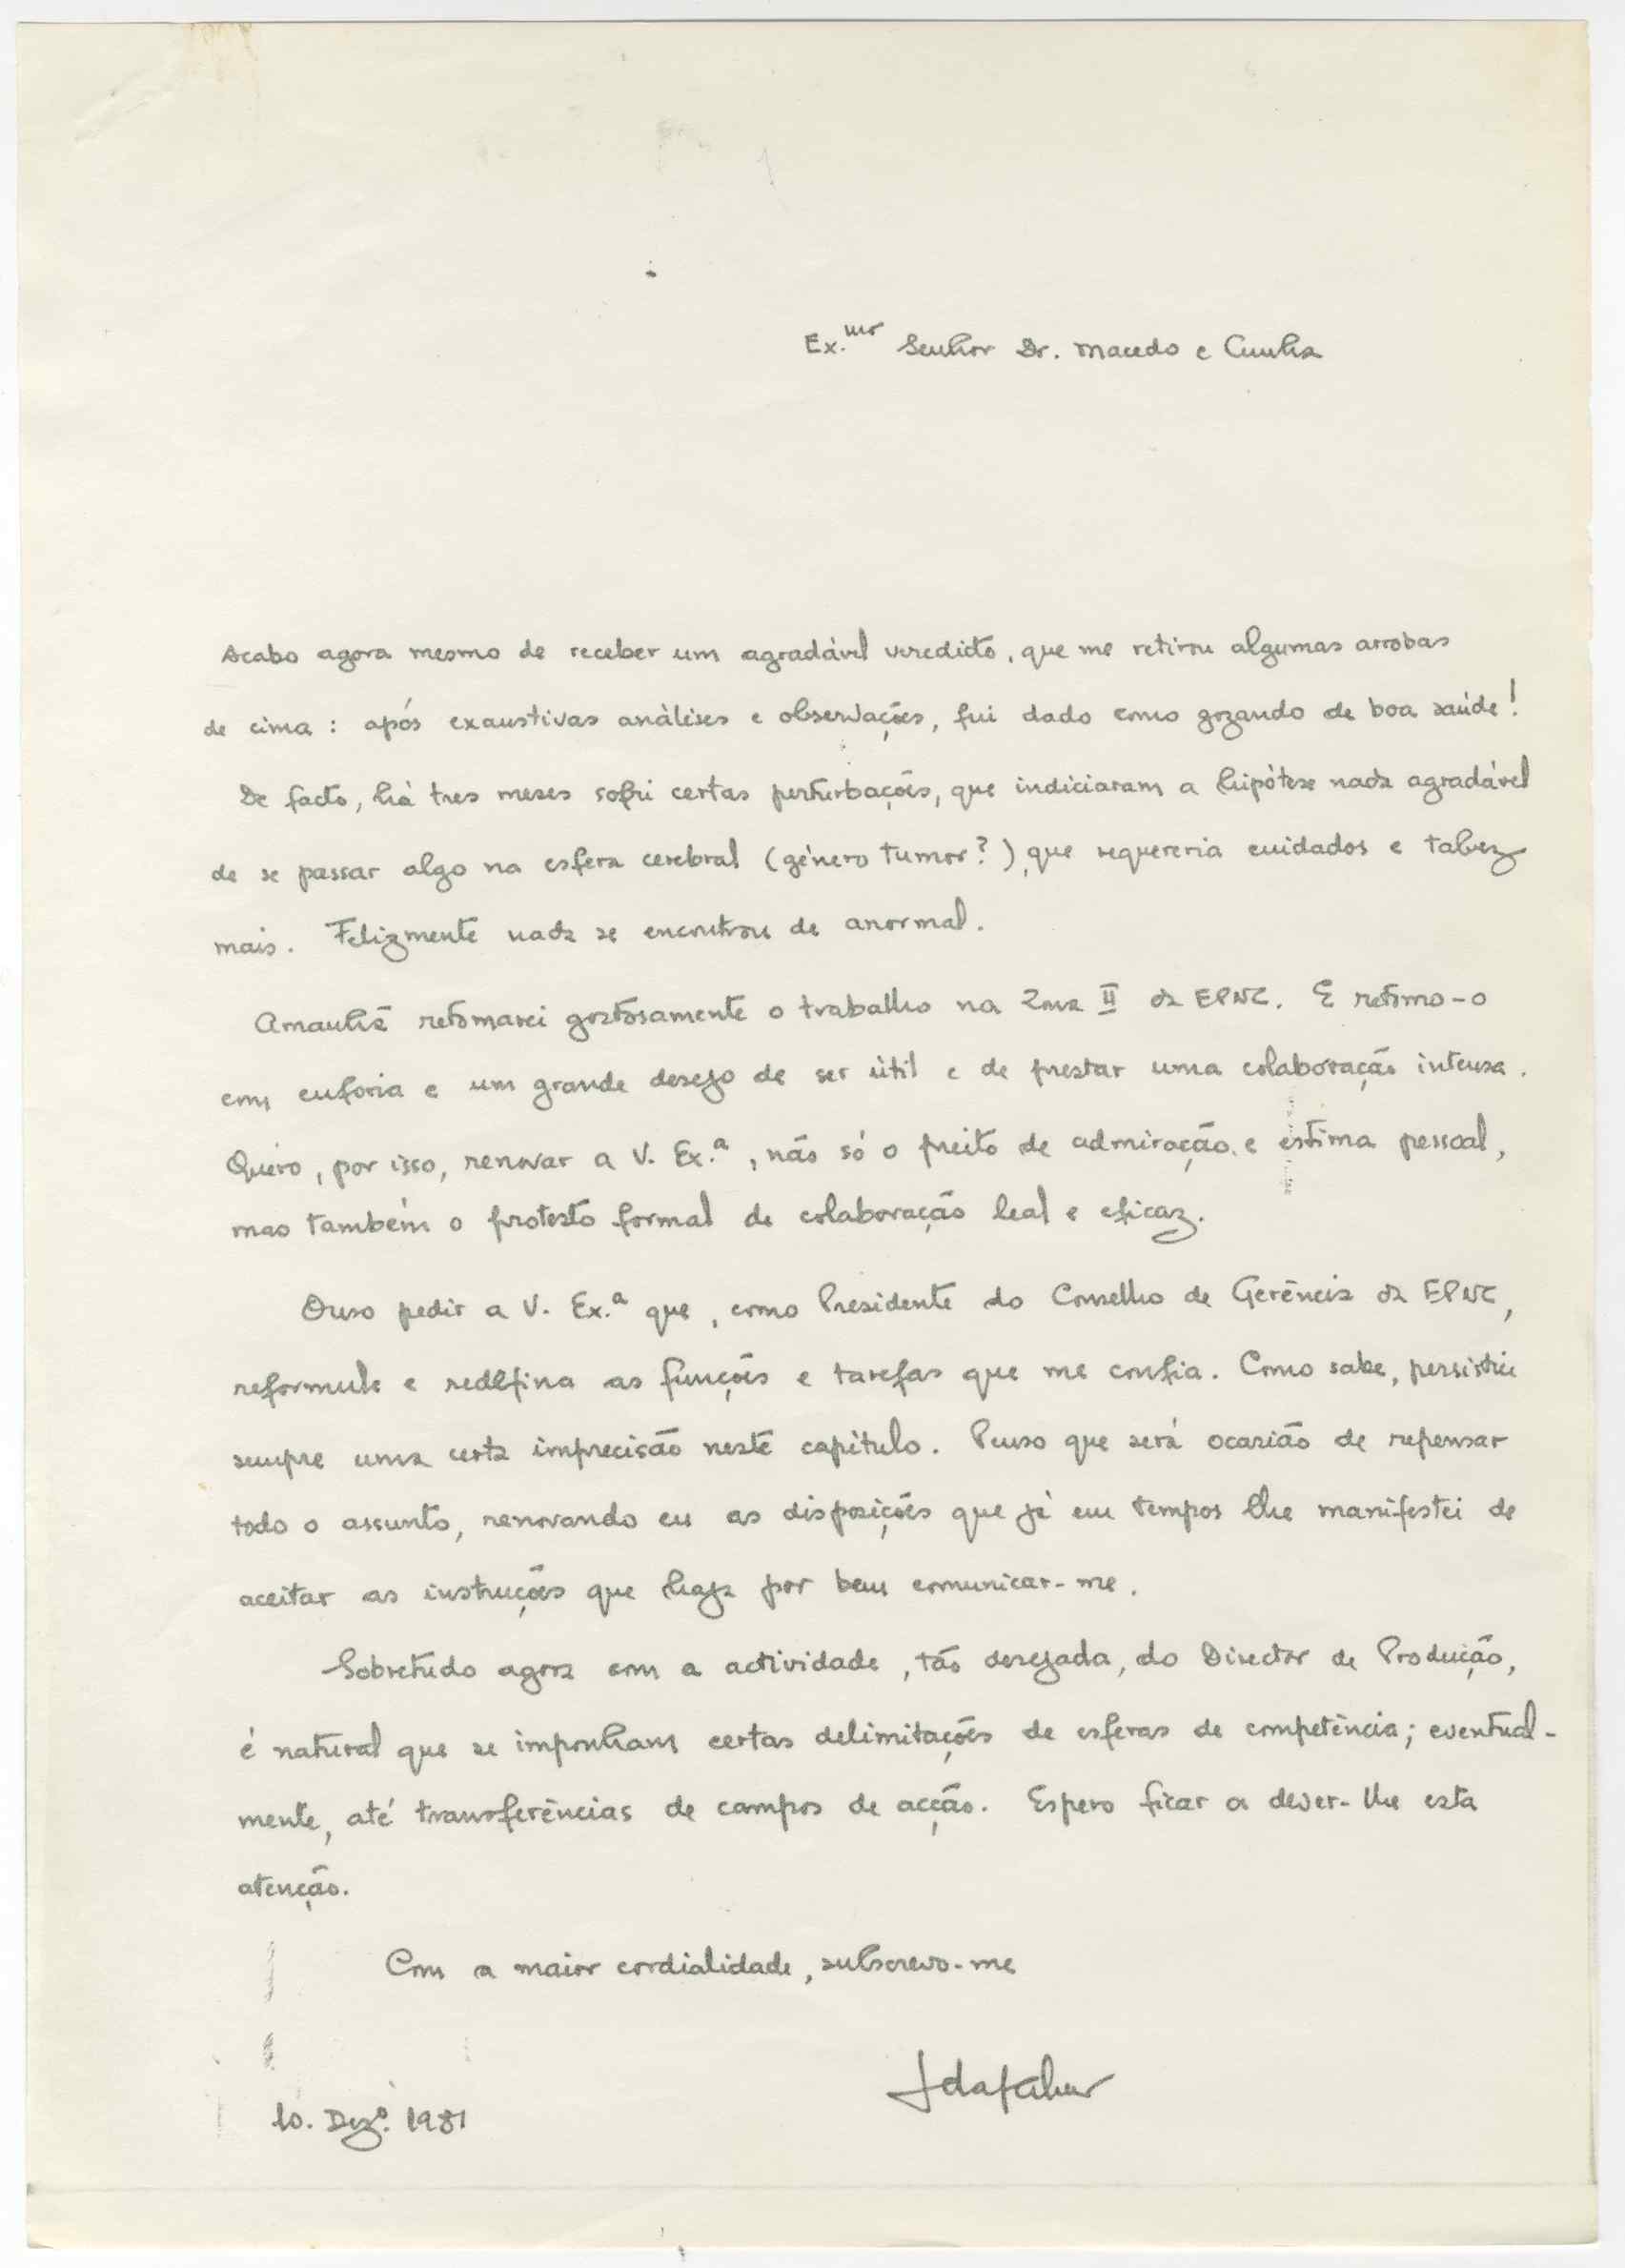 Ex.mo Senhor Dr. Macedo e Cunha
Acabo agora mesmo de receber um agradável veredicto, que me retirou algumas arrobas
de cima : após exaustivas análises e observações, fui dado como gozando de boa saúde!
De facto, há tres meses sofri certas perturbações, que indiciaram a hipótese nada agradável
de se passar algo na esfera cerebral (género tumor?), que requereria cuidados e talvez
mais. Felizmente nada se encontrou de anormal.
Amanhã retomarei gostosamente o trabalho na Zona II da EPNC. E retomo-o
com euforia e um grande desejo de ser útil e de prestar uma colaboração intensa.
Quero, por isso, renovar a V. Ex.ª, não só o preito de admiração e estima pessoal,
mas também o protesto formal de colaboração leal e eficaz.
Ouso pedir a V. Ex.ª que, como Presidente do Conselho de Gerência da EPNC,
reformule e redefina as funções e tarefas que me confia. Como sabe, persistiu
sempre uma certa imprecisão neste capítulo. Penso que será ocasião de repensar
todo o assunto, renovando eu as disposições que já em tempos lhe manifestei de
aceitar as instruções que haja por bem comunicar-me.
Sobretudo agora com a actividade, tão desejada, do Director de Produção,
é natural que se imponham certas delimitações de esferas de competência; eventual-
mente, até transferências de campos de acção. Espero ficar a dever-lhe esta
atenção.
Com a maior cordialidade, subscrevo-me
10. Dezº. 1981